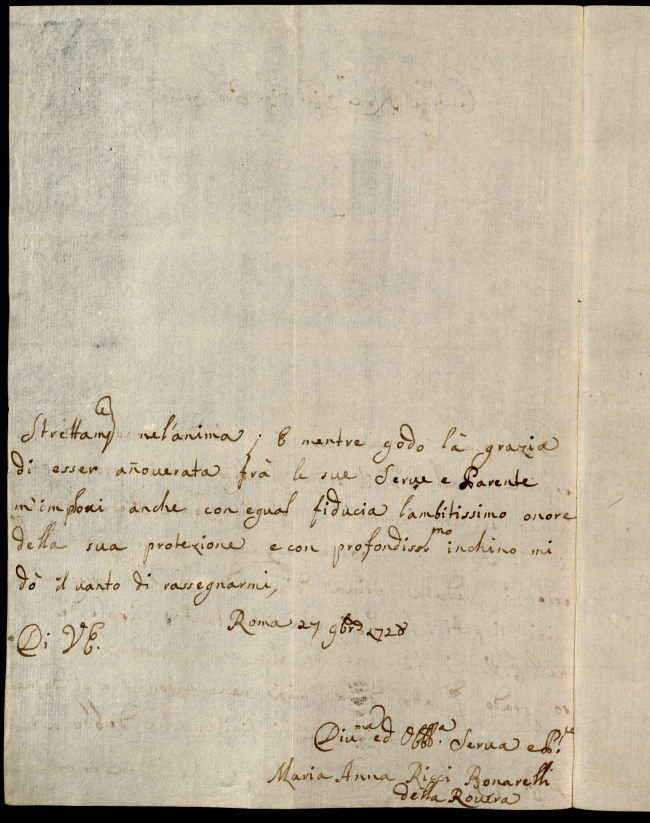 Strettam^e nel'anima; E mentre godo là grazia
di esser añouerata frà le sue Serue e Parente
m'implori anche con egual fiducia l'ambitissimo onore
della sua protezione e con profondiss^mo inchino mi
dò il uanto di rassegnarmi,
Roma 27 9bre 1728
Di V.E.
Diu^ma ed Obb^ma Serua e P^te
Maria Anna Ricci Bonarelli
della Rouera